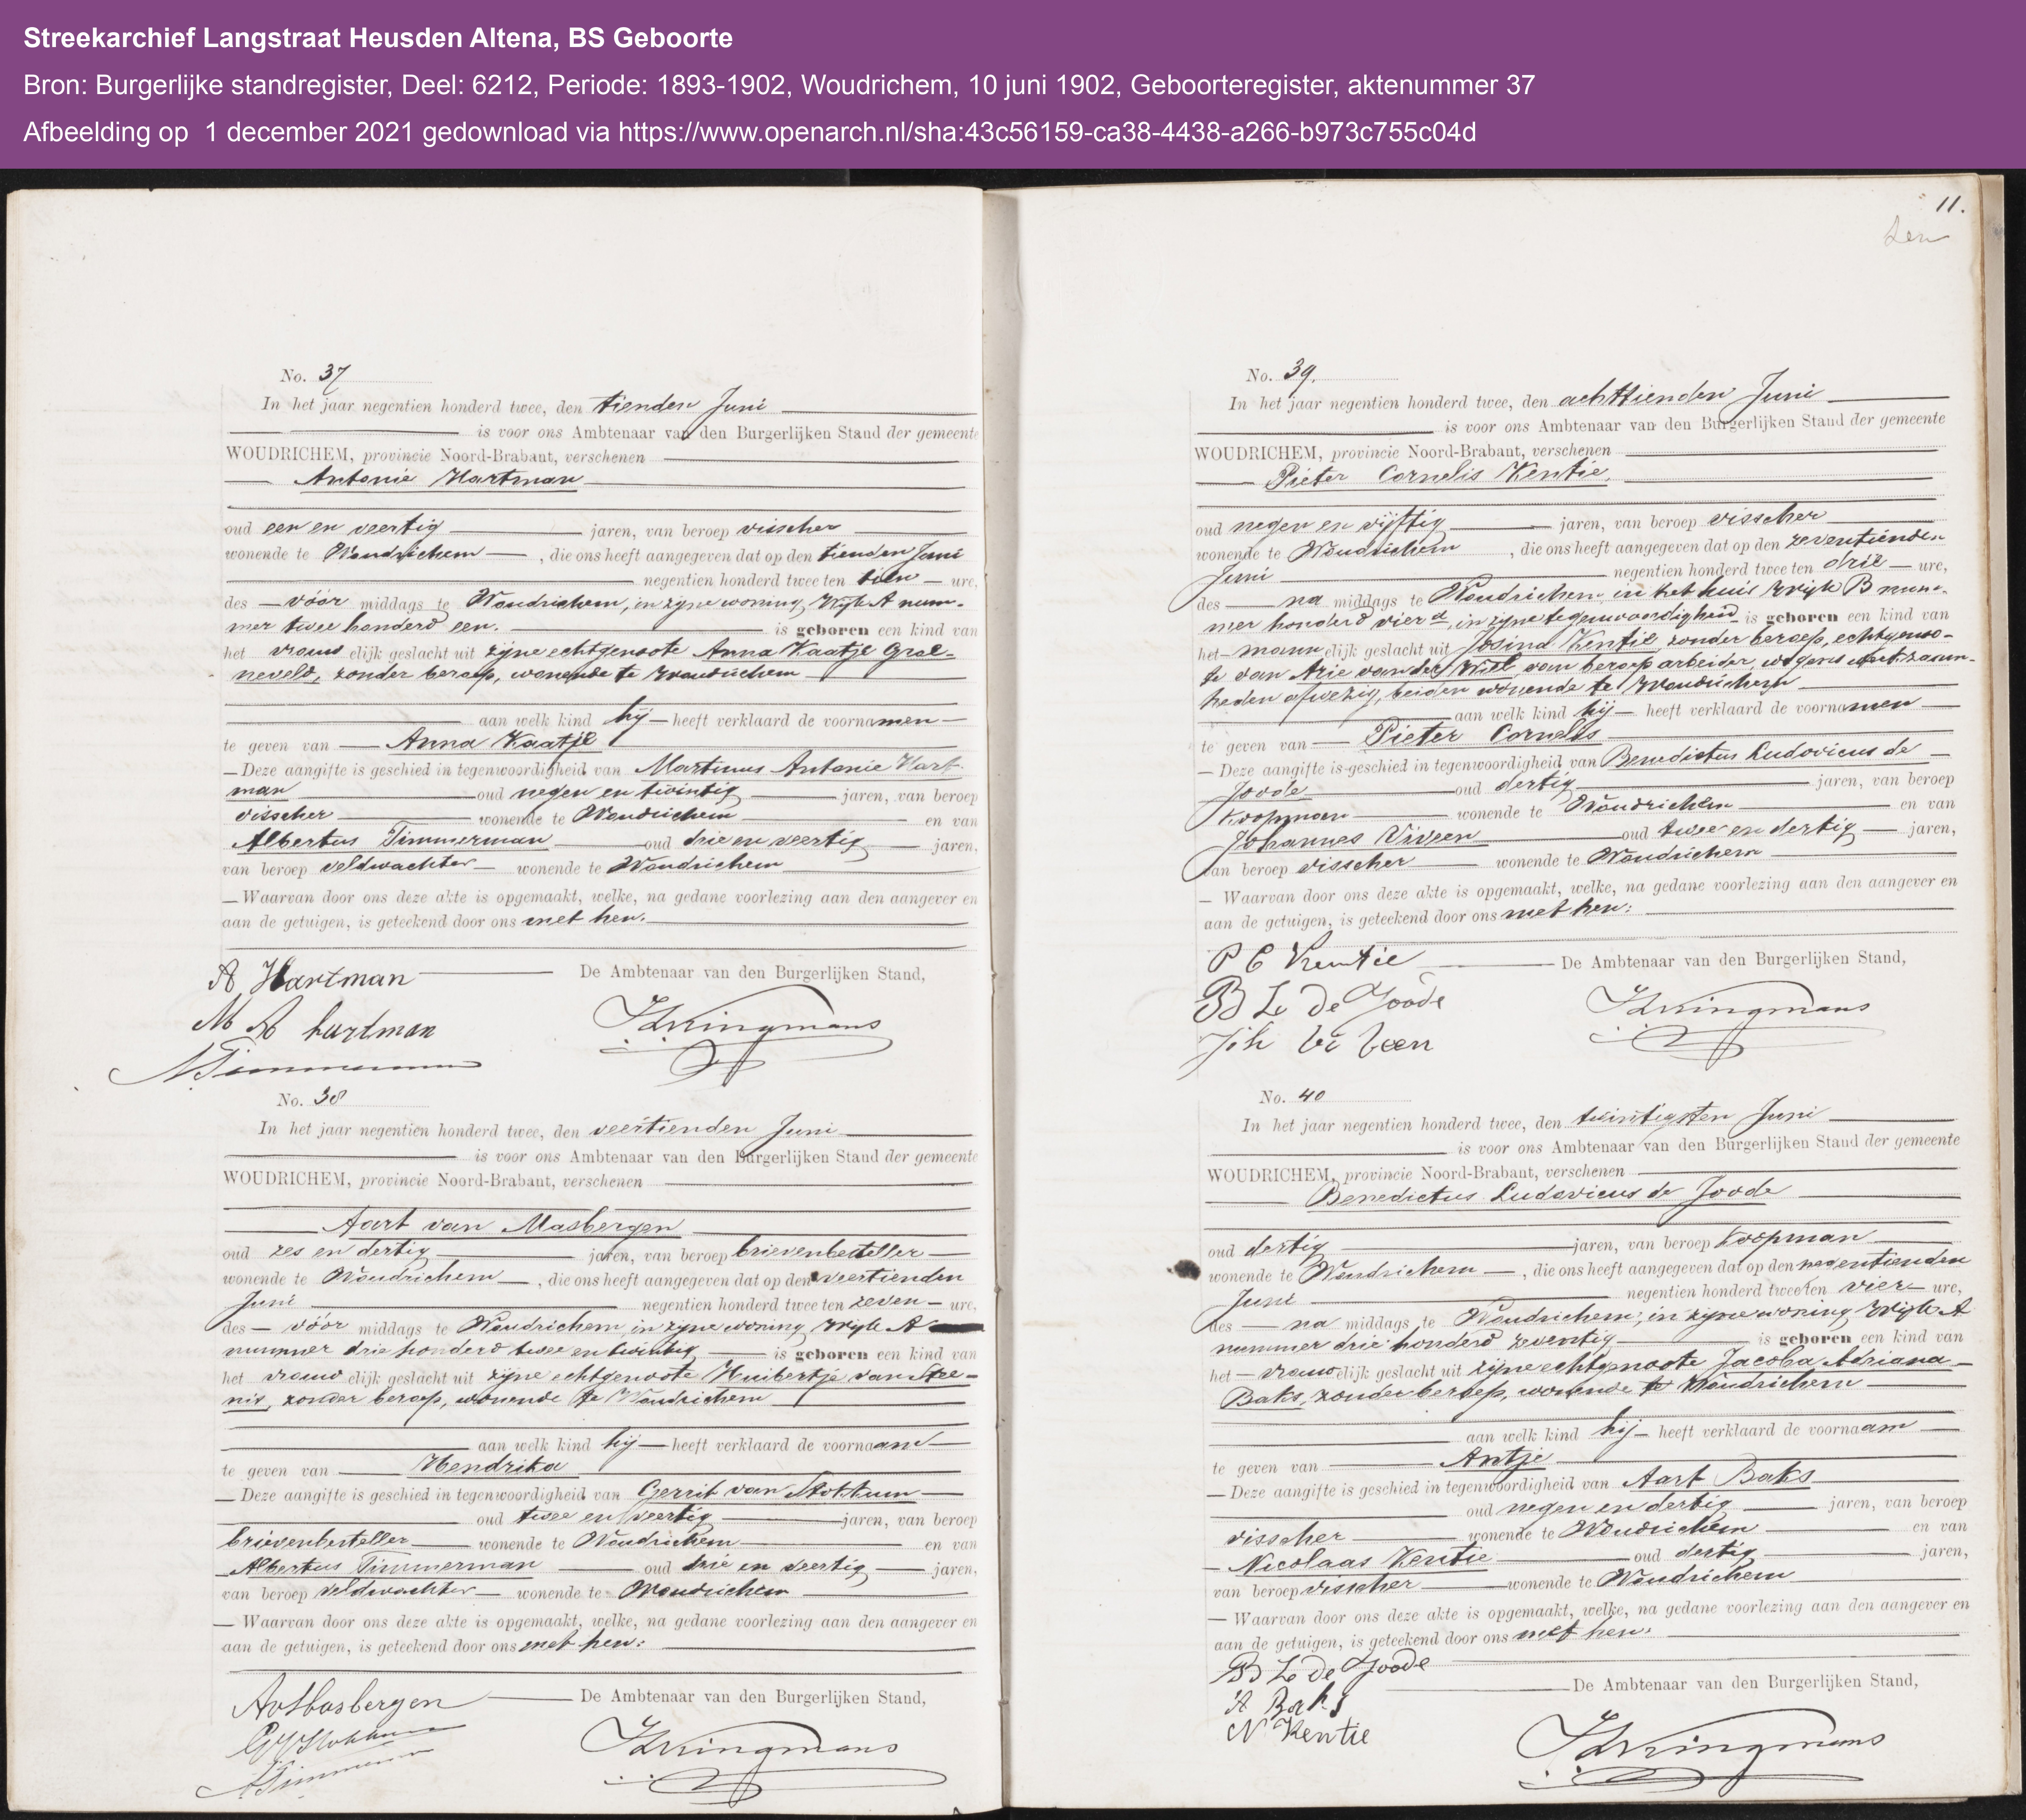 Streekarchief Langstraat Heusden Altena, BS Geboorte
Bron: Burgerlijke standregister, Deel: 6212, Periode: 1893-1902, Woudrichem, 10 juni 1902, Geboorteregister, aktenummer 37
Afbeelding op 1 december 2021 gedownload via https://www.openarch.nl/sha:43c56159-ca38-4438-a266-b973c755c04d
No. 37
In het jaar negentien honderd twee, den tienden Juni
is voor ons Ambtenaar van den Burgerlijken Stand der gemeente
WOUDRICHEM, provincie Noord-Brabant, verschenen
Antonie Hartman
oud een en veertig jaren, van beroep visscher
wonende te Woudrichem, die ons heeft aangegeven dat op den tienden Juni
negentien honderd twee ten tien ure,
des vóór middags te Woudrichem, in zijne woning, Wijk A num-
mer twee honderd een. is geboren een kind van
het vrouwelijk geslacht uit zijne echtgenoote Anna Kaatje Groe-
neveld, zonder beroep, wonende te Woudrichem
aan welk kind hij heeft verklaard de voornamen
te geven van Anna Kaatje
Deze aangifte is geschied in tegenwoordigheid van Martinus Antonie Hart-
man oud negen en twintig jaren, van beroep
visscher wonende te Woudrichem en van
Albertus Timmerman oud drie en veertig jaren,
van beroep veldwachter wonende te Woudrichem
Waarvan door ons deze akte is opgemaakt, welke, na gedane voorlezing aan den aangever en
aan de getuigen, is geteekend door ons met hen.
A Hartman De Ambtenaar van den Burgerlijken Stand,
M A hartman
ATimmerman
No. 38
In het jaar negentien honderd twee, den veertienden Juni
is voor ons Ambtenaar van den Burgerlijken Stand der gemeente
WOUDRICHEM, provincie Noord-Brabant, verschenen
Aart van Masbergen
oud zes en dertig jaren, van beroep brievenbesteller
wonende te Woudrichem, die ons heeft aangegeven dat op den veertienden
Juni negentien honderd twee ten zeven ure,
des vóór middags te Woudrichem, in zijne woning, Wijk A
nummer drie honderd twee en twintig is geboren een kind van
het vrouwelijk geslacht uit zijne echtgenoote Huibertje van Stee-
nis, zonder beroep, wonende te Woudrichem
aan welk kind hij heeft verklaard de voornaam
te geven van Hendrika
Deze aangifte is geschied in tegenwoordigheid van Gerrit van Stokkum
oud twee en veertig jaren, van beroep
brievenbesteller wonende te Woudrichem en van
Albertus Timmerman oud drie en veertig jaren,
van beroep veldwachter wonende te Woudrichem
Waarvan door ons deze akte is opgemaakt, welke, na gedane voorlezing aan den aangever en
aan de getuigen, is geteekend door ons met hen.
De Ambtenaar van den Burgerlijken Stand,
11.
No. 39.
In het jaar negentien honderd twee, den achttienden Juni
is voor ons Ambtenaar van den Burgerlijken Stand der gemeente
WOUDRICHEM, provincie Noord-Brabant, verschenen
Pieter Cornelis Kentie,
oud negen en vijftig jaren, van beroep visscher
wonende te Woudrichem, die ons heeft aangegeven dat op den zeventienden
Juni negentien honderd twee ten drie ure,
des na middags te Woudrichem in het huis Wijk B num-
mer honderd vier, in zijne tegenwoordigheid is geboren een kind van
het mannelijk geslacht uit Josina Kentie, zonder beroep, echtgenoo-
te van Arie van der Wiel, van beroep arbeider, wegens werkzaam-
heden afwezig, beiden wonende te Woudrichem
aan welk kind hij heeft verklaard de voornamen
te geven van Pieter Cornelis
Deze aangifte is geschied in tegenwoordigheid van Benedictus Ludovicus de
Joode oud dertig jaren, van beroep
koopman wonende te Woudrichem en van
Johannes Viveen oud twee en dertig jaren,
van beroep visscher wonende te Woudrichem
Waarvan door ons deze akte is opgemaakt, welke, na gedane voorlezing aan den aangever en
aan de getuigen, is geteekend door ons met hen.
P C Kentie De Ambtenaar van den Burgerlijken Stand,
B L de Joode
Joh Vi Veen
No. 40
In het jaar negentien honderd twee, den twintigsten Juni
is voor ons Ambtenaar van den Burgerlijken Stand der gemeente
WOUDRICHEM, provincie Noord-Brabant, verschenen
Benedictus Ludovicus de Joode
oud dertig jaren, van beroep koopman
wonende te Woudrichem, die ons heeft aangegeven dat op den negentienden
Juni negentien honderd twee ten vier ure,
des na middags te Woudrichem, in zijne woning, Wijk A
nummer drie honderd zeventig is geboren een kind van
het vrouwelijk geslacht uit zijne echtgenoote Jacoba Adriana
Baks, zonder beroep, wonende te Woudrichem
aan welk kind hij heeft verklaard de voornaam
te geven van Antje
Deze aangifte is geschied in tegenwoordigheid van Aart Baks
oud negen en dertig jaren, van beroep
visscher wonende te Woudrichem en van
Nicolaas Kentie oud dertig jaren,
van beroep visscher wonende te Woudrichem
Waarvan door ons deze akte is opgemaakt, welke, na gedane voorlezing aan den aangever en
aan de getuigen, is geteekend door ons met hen.
B L de Joode
De Ambtenaar van den Burgerlijken Stand,
A Baks
N Kentie